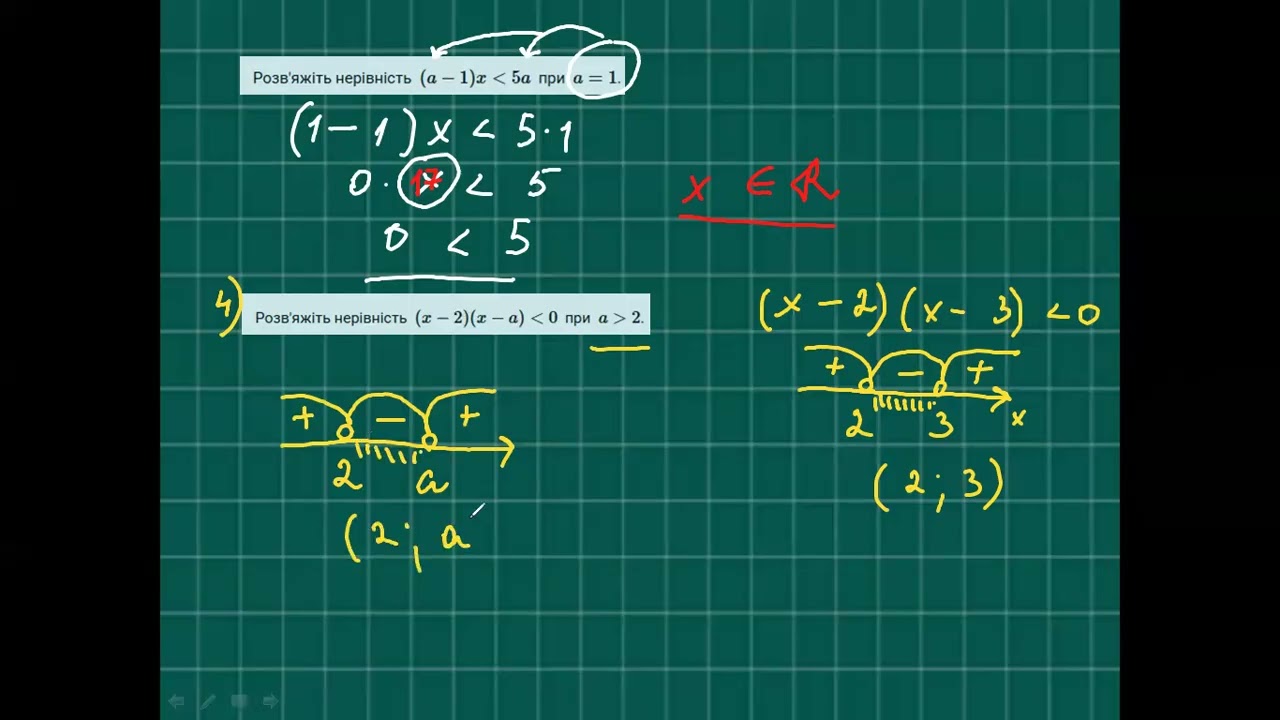 Розв'яжіть нерівність (a − 1)x < 5a при a = 1.
(1 − 1) x < 5 · 1
0 · 17 < 5
x ∈ ℝ
0 < 5
4)
Розв'яжіть нерівність (x − 2)(x − a) < 0 при a > 2.
(x − 2)(x − 3) < 0
+ − +
2 3 x
(2; 3)
+ − +
2 a
(2; a